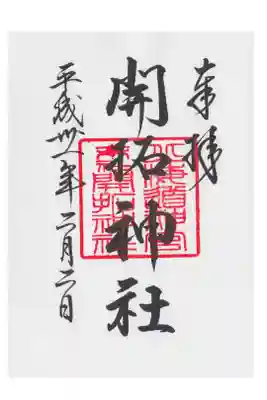 奉拝
開拓神社
北海道神宮
末社開拓神社
平成卅一年二月二日